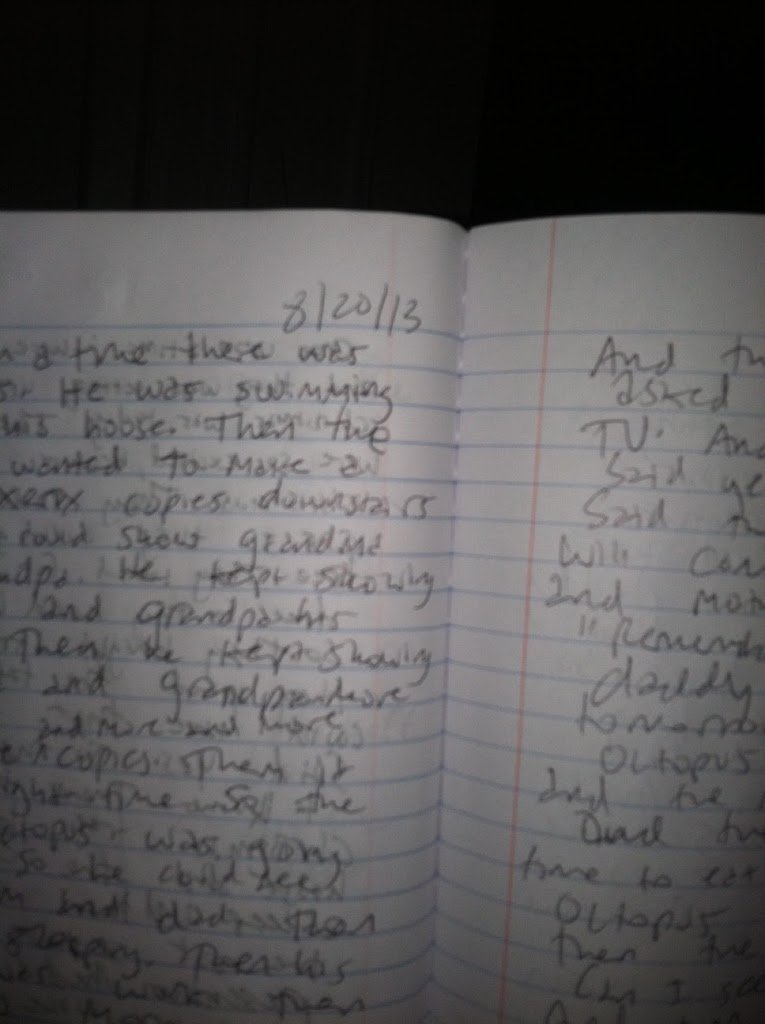 8/20/13
a time there was
He was swimming
his house. Then the
wanted to make a
xerox copies downstairs
could show grandma
ndpa. He kept showing
and grandpa his
Then he kept showing
and grandpa more
and more and more
copies. Then it
ight time so the
ctopus was going
so he could see
m and dad. then
sleeping. Then his
work then
And th
asked
TV. And
Said ye
Said th
will com
and mom
"Rememb
daddy
tomorro
Octopus
and the
And th
time to eat
Octopus
then the
Can I se